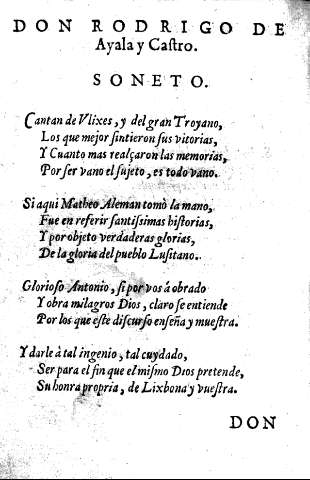 DON RODRIGO DE
Ayala y Caſtro.
SONETO.
Cantan de Vlixes, y del gran Troyano,
Los que mejor ſintieron ſus vitorias,
Y Cuanto mas realçaron las memorias,
Por ſer vano el ſujeto, es todo vano.
Si aqui Matheo Aleman tomò la mano,
Fue en referir ſantiſsimas hiſtorias,
Y por objeto verdaderas glorias,
De la gloria del pueblo Luſitano.
Glorioſo Antonio, ſi por vos á obrado
Y obra milagros Dios, claro ſe entiende
Por los que eſte diſcurſo enſeña y mueſtra.
Y darle à tal ingenio, tal cuydado,
Ser para el fin que el miſmo Dios pretende,
Su honra propria, de Lixbona y vueſtra.
DON